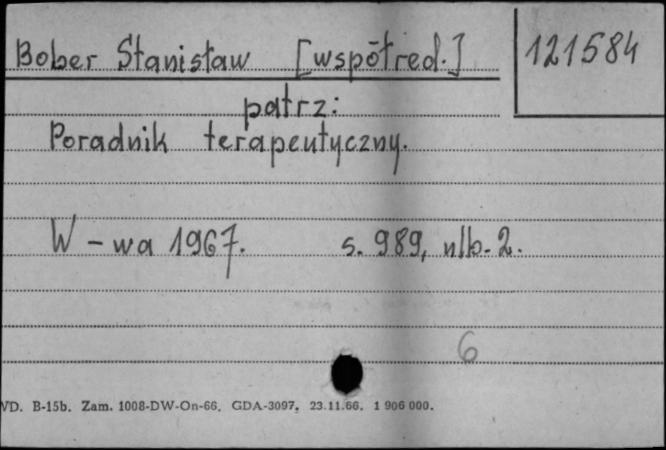 Bober Stanisław [współred.]
121584
patrz:
Poradnik terapeutyczny.
W-wa 1967. s. 989, nlb. 2.
6
VD. B-15b. Zam. 1008-DW-On-66. GDA-3097. 23.11.66. 1 906 000.